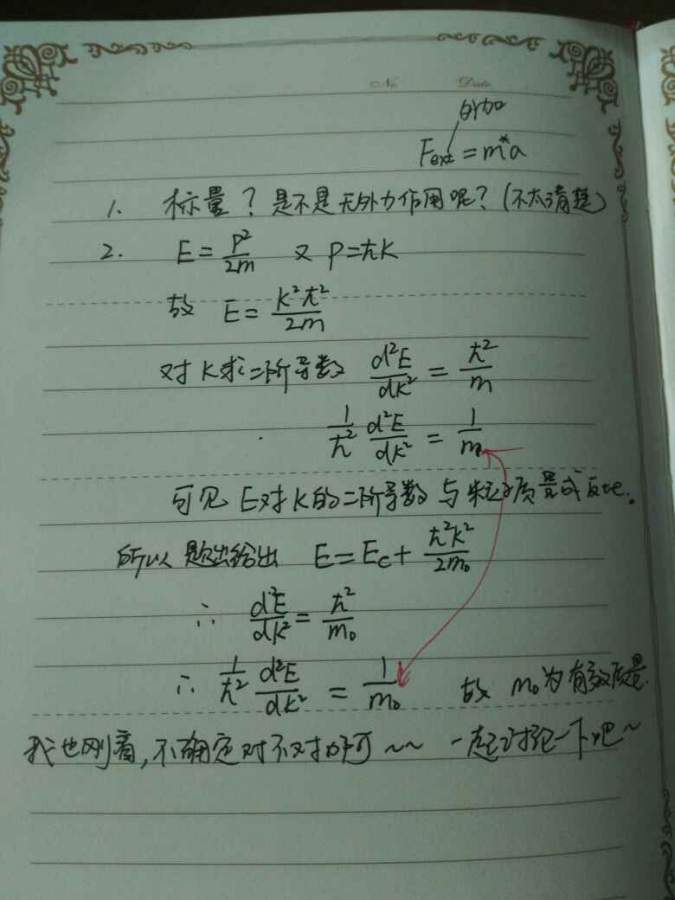 No Date
外加
Fext = m*a
1. 标量？是不是无外力作用呢？(不太清楚)
2. E = P²/2m 又 P=ħK
故 E = K²ħ²/2m
对K求二阶导数 d²E/dK² = ħ²/m
1/ħ² d²E/dK² = 1/m
可见E对K的二阶导数与粒子质量成反比。
所以题出给出 E = Ec + ħ²k²/2m₀
∴ d²E/dK² = ħ²/m₀
∴ 1/ħ² d²E/dK² = 1/m₀ 故 m₀为有效质量.
我也刚看，不确定对不对哈 ~~ 一起讨论一下吧~